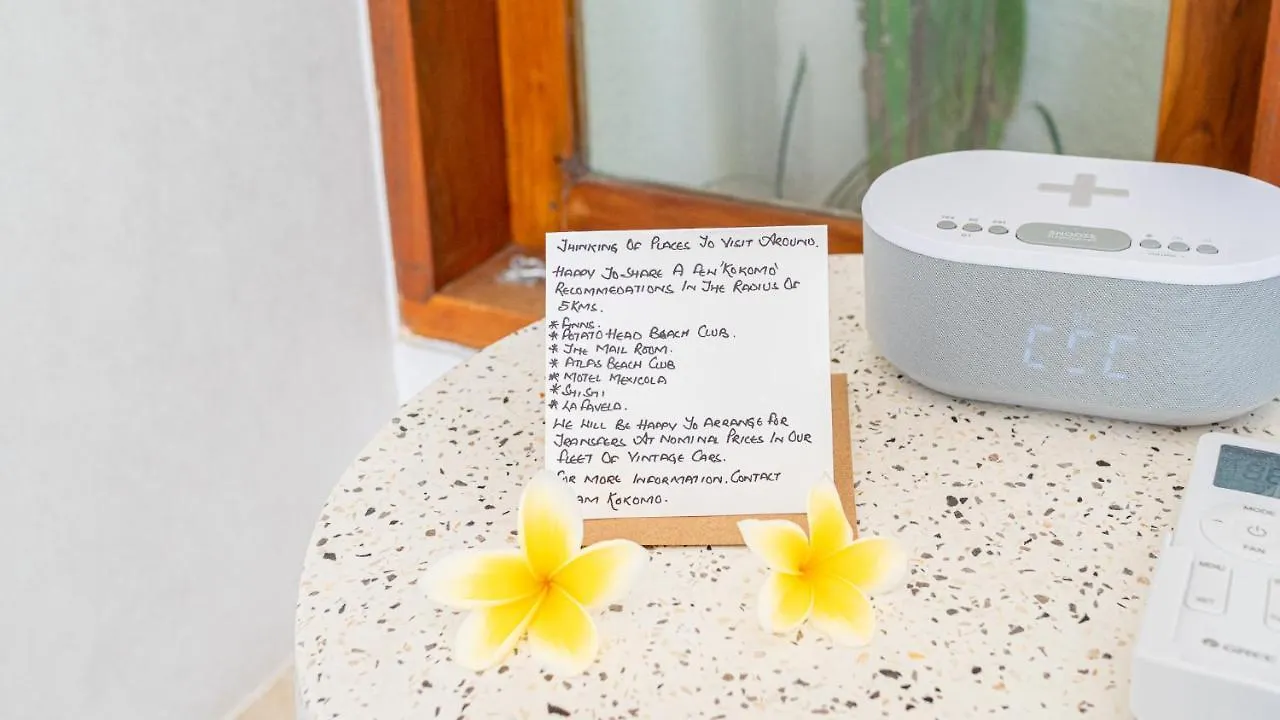 THINKING OF PLACES TO VISIT AROUND.
HAPPY TO SHARE A FEW 'KOKOMO'
RECOMMEDATIONS IN THE RADIUS OF
5KMS.
* FINNS.
* POTATO HEAD BEACH CLUB.
* THE MAIL ROOM.
* ATLAS BEACH CLUB
* MOTEL MEXICOLA
* SHISHI
* LA FAVELA.
WE WILL BE HAPPY TO ARRANGE FOR
TRANSFERS AT NOMINAL PRICES IN OUR
FLEET OF VINTAGE CARS.
FOR MORE INFORMATION. CONTACT
AM KOKOMO.
SNOOZE
MODE
FAN
MENU
SET
GREE